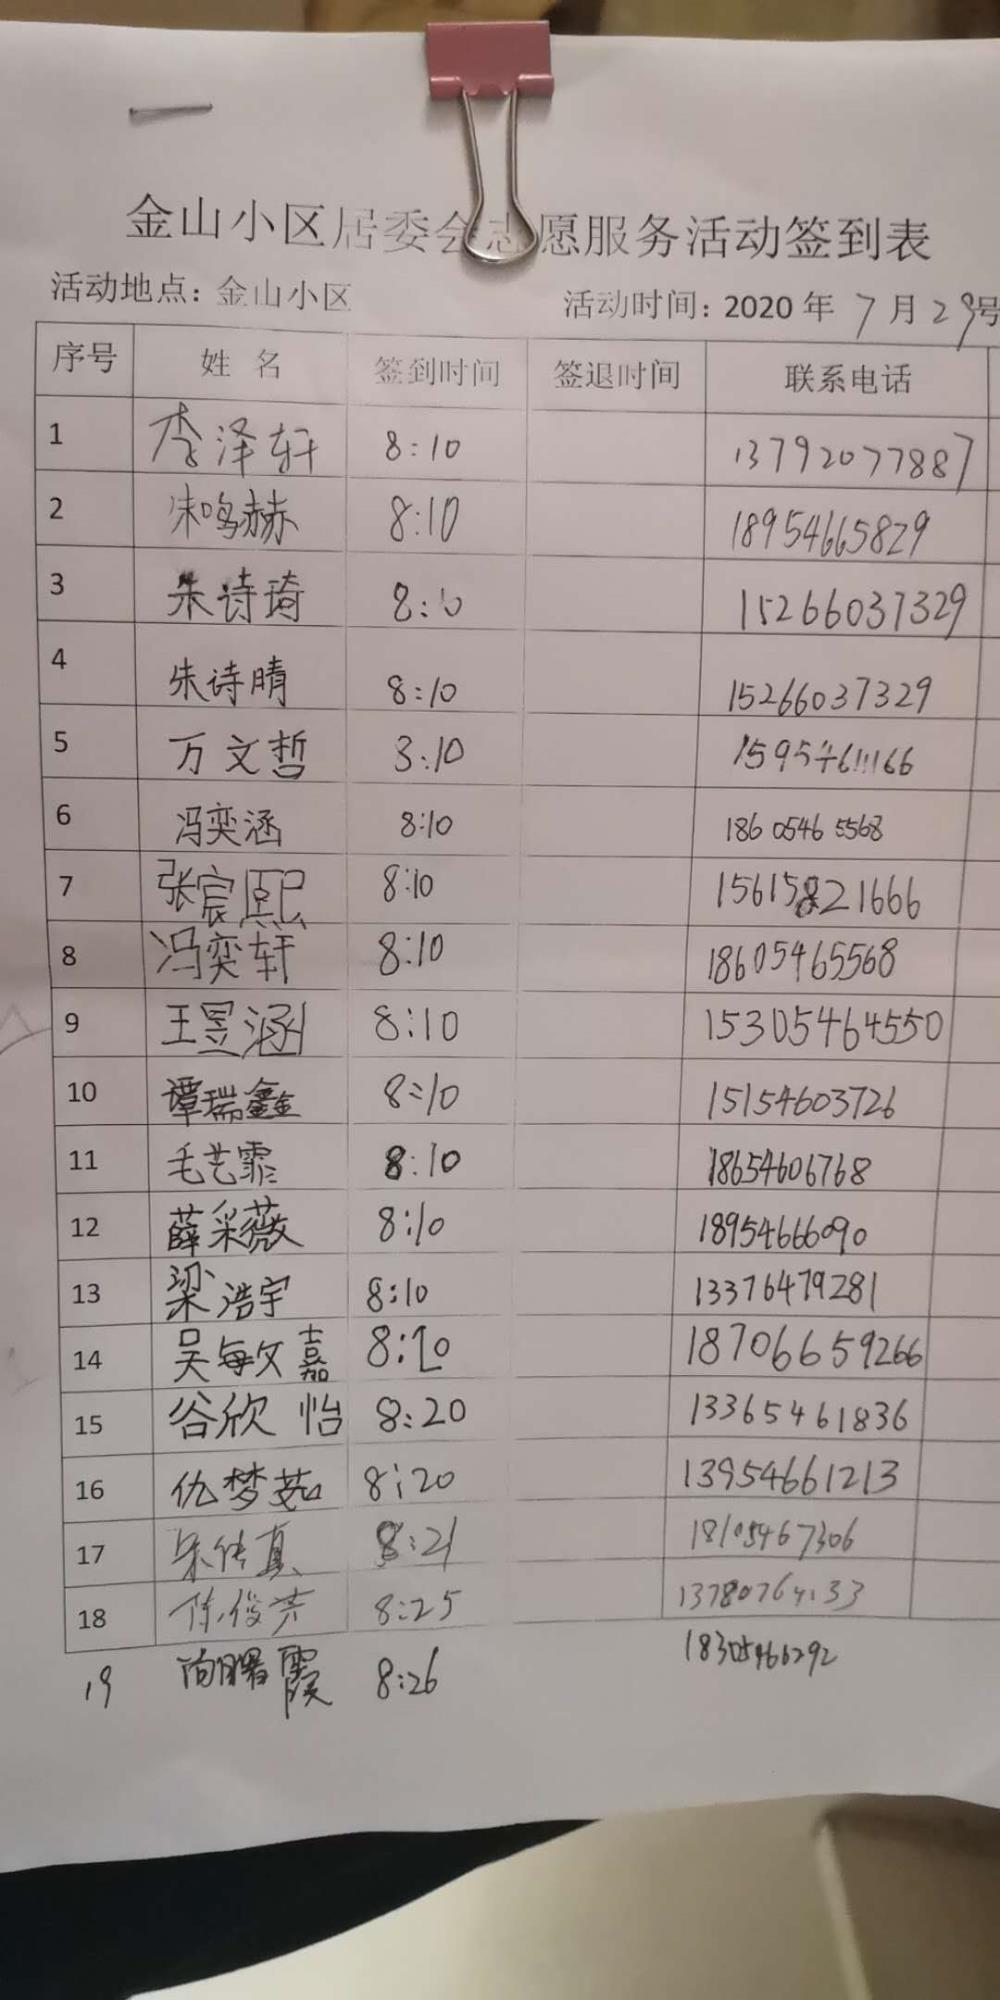 金山小区居委会志愿服务活动签到表
活动地点：金山小区 活动时间：2020 年 7 月 29号
序号 姓 名 签到时间 签退时间 联系电话
1 李泽轩 8:10 13792077887
2 朱鸣赫 8:10 18954665829
3 朱诗琦 8:10 15266037329
4 朱诗晴 8:10 15266037329
5 万文哲 8:10 15954611166
6 冯奕涵 8:10 186 0546 5568
7 张宸熙 8:10 15615821666
8 冯奕轩 8:10 18605465568
9 王昱涵 8:10 15305464550
10 谭瑞鑫 8:10 15154603726
11 毛艺霏 8:10 18654606768
12 薛采薇 8:10 18954666090
13 梁浩宇 8:10 13376479281
14 吴敏嘉 8:20 18706659266
15 谷欣怡 8:20 13365461836
16 仇梦茹 8:20 13954661213
17 8:21 18105467306
18 8:25
19 8:26